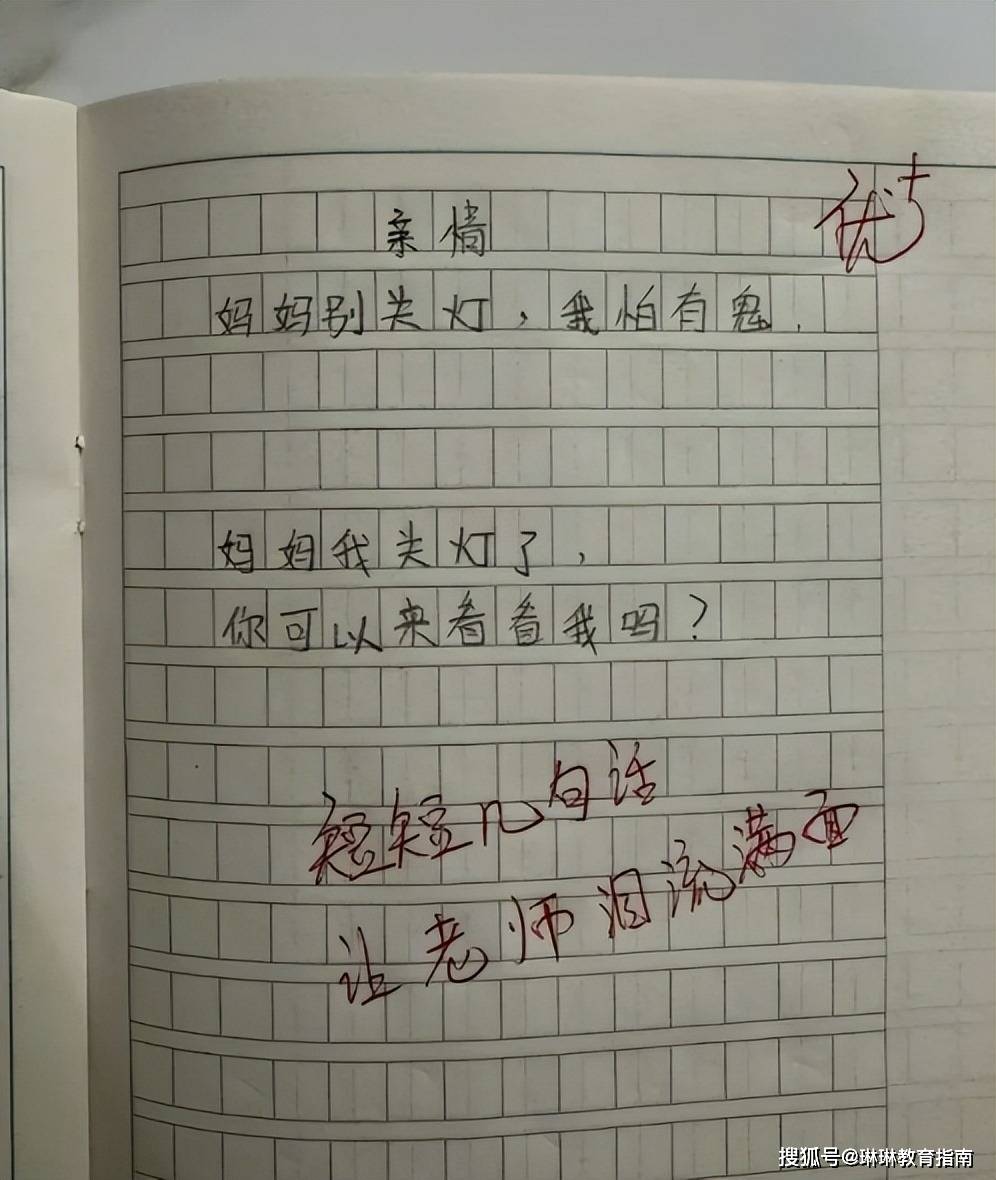 亲情
优+
妈妈别关灯，我怕有鬼．
妈妈我关灯了，
你可以来看看我吗？
短短几句话
让老师泪流满面
搜狐号@琳琳教育指南